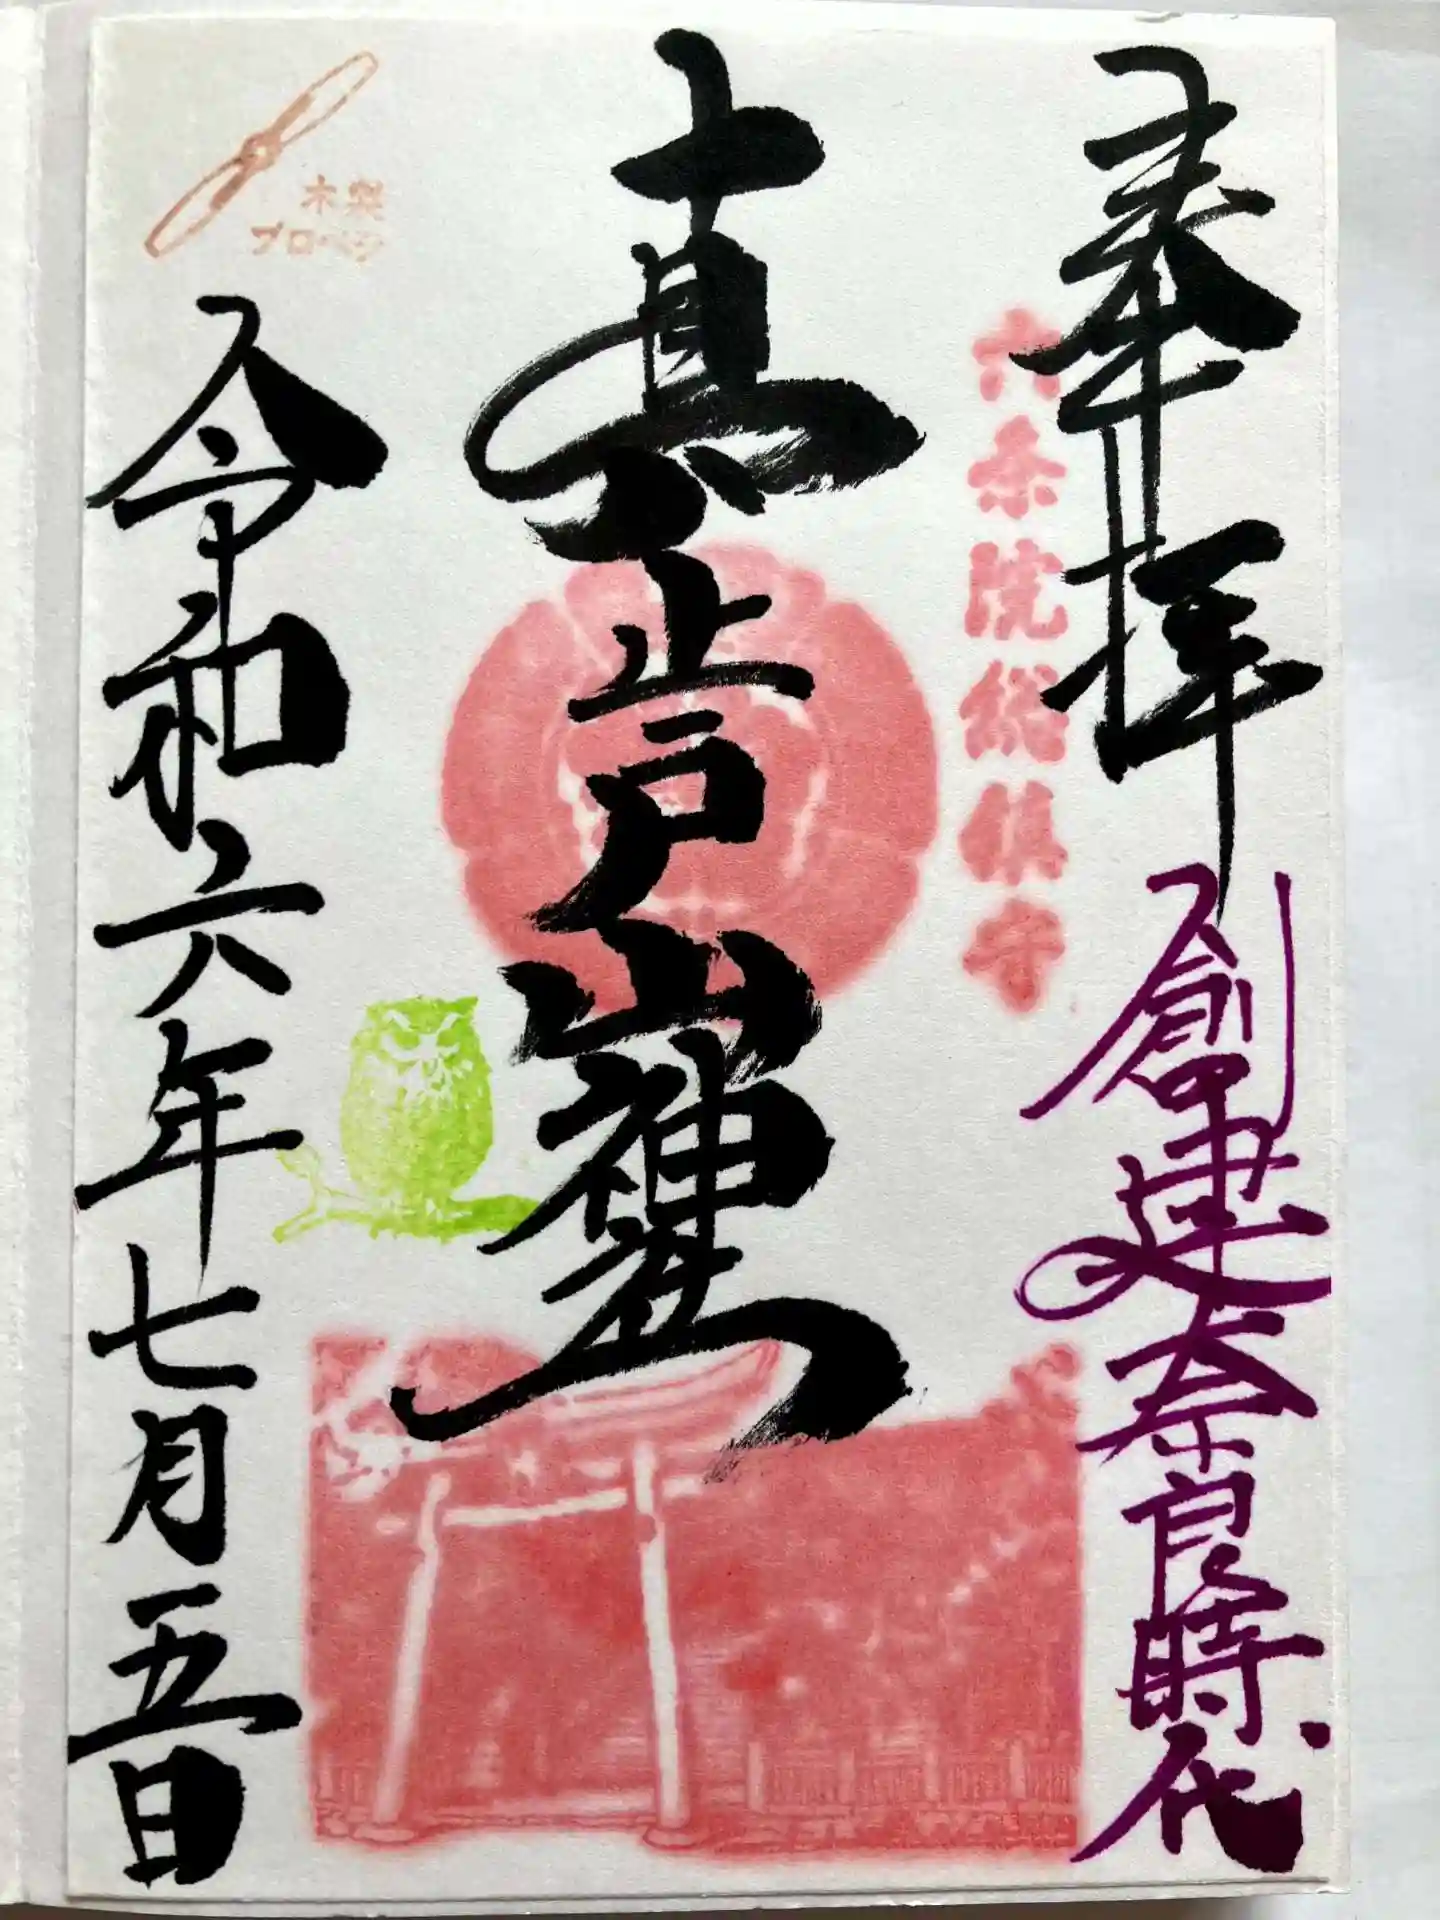 奉拝
創建奈良時代
六条院総鎮守
真止戸山神社
木製
プロペラ
令和六年七月五日